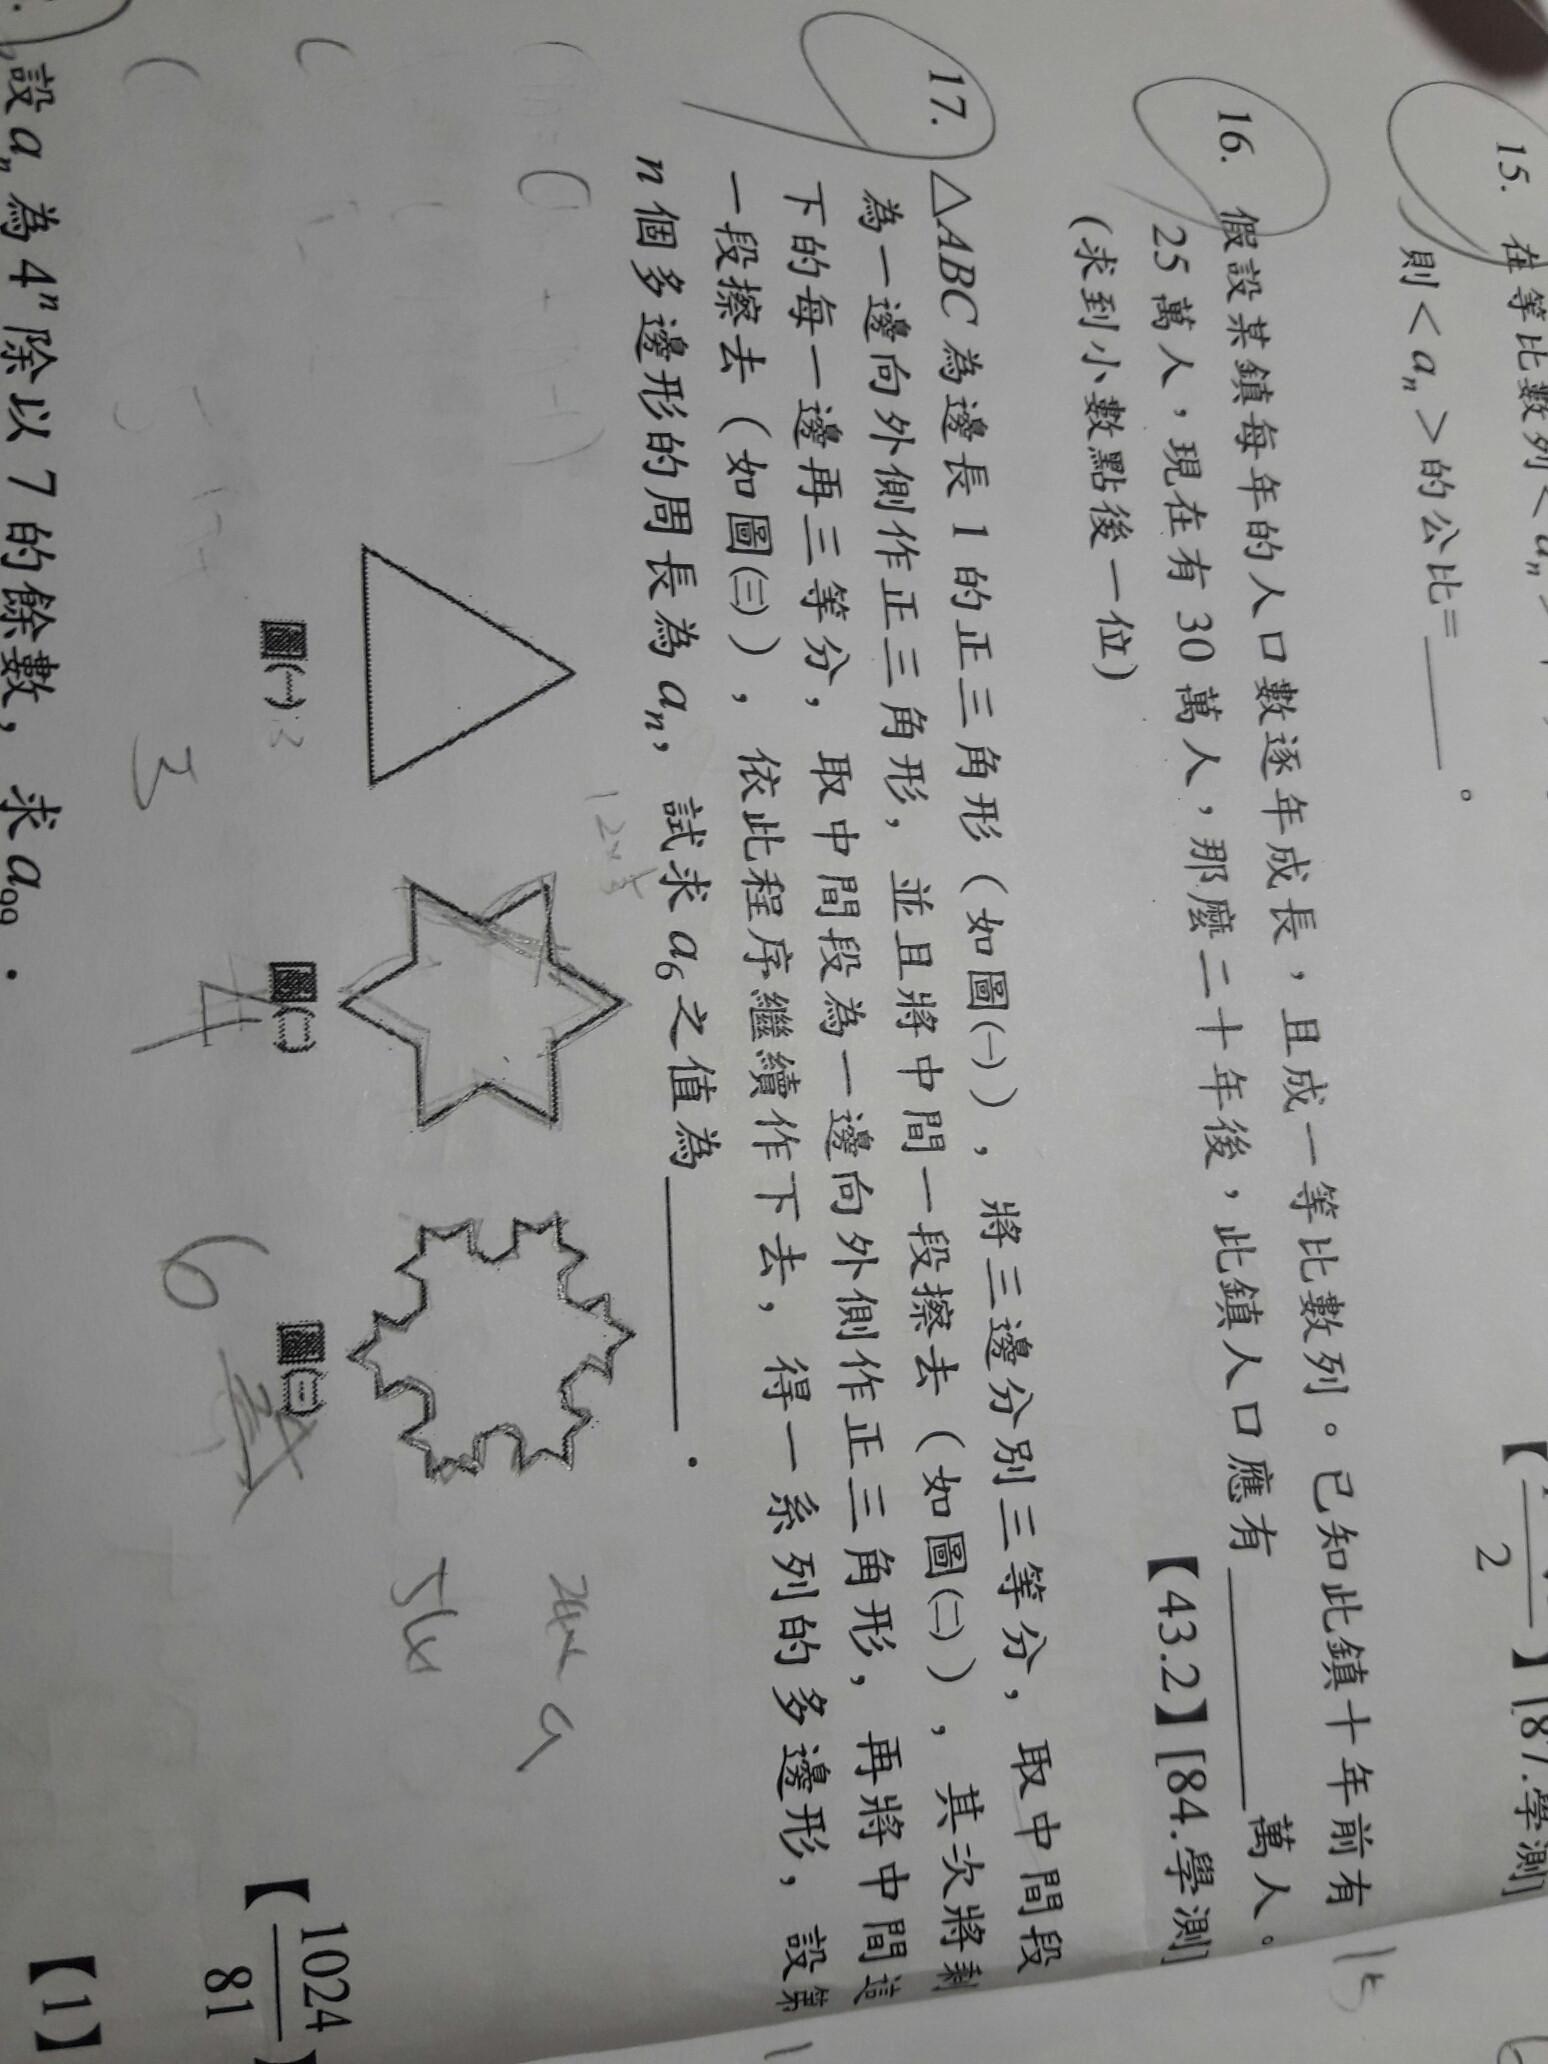 15. 在等比數列< aₙ
則< aₙ >的公比=______。
2
】[87.學測]
16. 假設某鎮每年的人口數逐年成長，且成一等比數列。已知此鎮十年前有
25 萬人，現在有 30 萬人，那麼二十年後，此鎮人口應有______萬人。
(求到小數點後一位)
【43.2】[84.學測]
17. △ABC 為邊長 1 的正三角形（如圖㈠），將三邊分別三等分，取中間段
為一邊向外側作正三角形，並且將中間一段擦去（如圖㈡），其次將剩
下的每一邊再三等分，取中間段為一邊向外側作正三角形，再將中間這
一段擦去（如圖㈢），依此程序繼續作下去，得一系列的多邊形，設第
n 個多邊形的周長為 aₙ，試求 a₆ 之值為______．
圖㈠
圖㈡
圖㈢
3
4
6
【1024/81】
設 aₙ 為 4ⁿ 除以 7 的餘數，求 a₉₉．
【1】